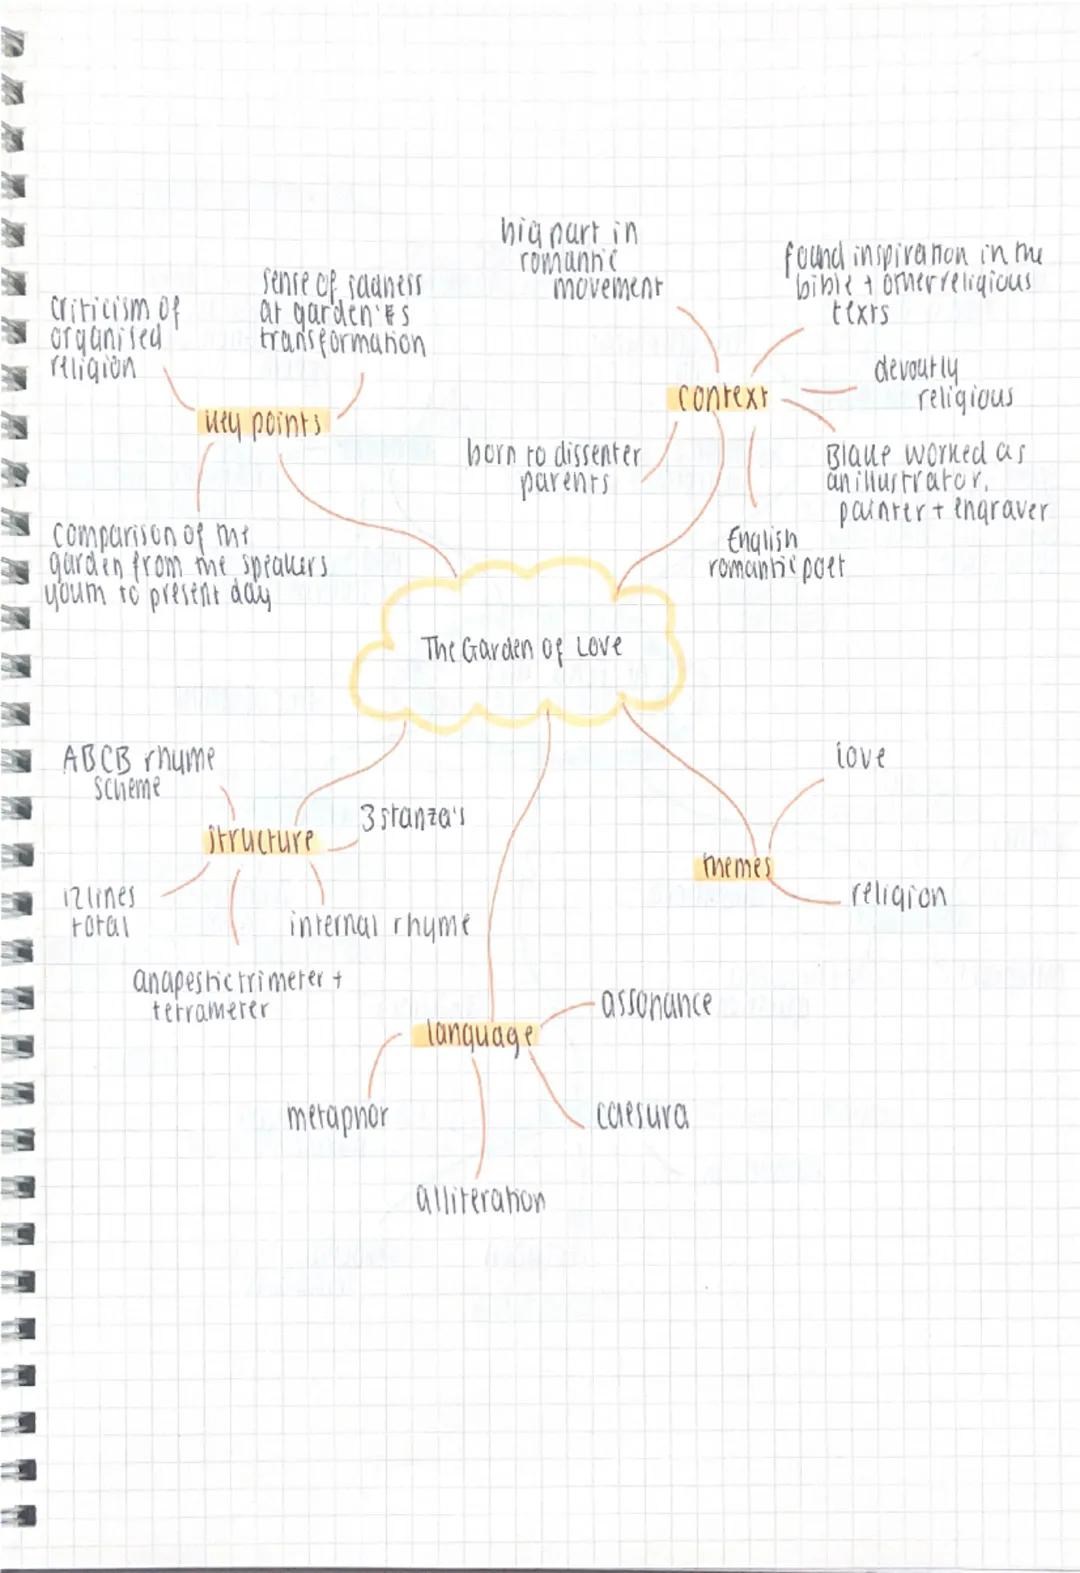 big part in
romantic
movement
found inspiration in the
bible + other religious
texts
sense of sadness
at garden's
transformation
criticism of
organised
religion
devoutly
religious
context
key points
born to dissenter
parents
Blake worked as
an illustrator,
painter + engraver
comparison of the
garden from the speakers
youth to present day
English
romantic poet
The Garden of Love
ABCB rhyme
scheme
love
3 stanza's
structure
themes
12 lines
total
internal rhyme
religion
anapestic trimeter +
tetrameter
assonance
language
metaphor
caesura
alliteration